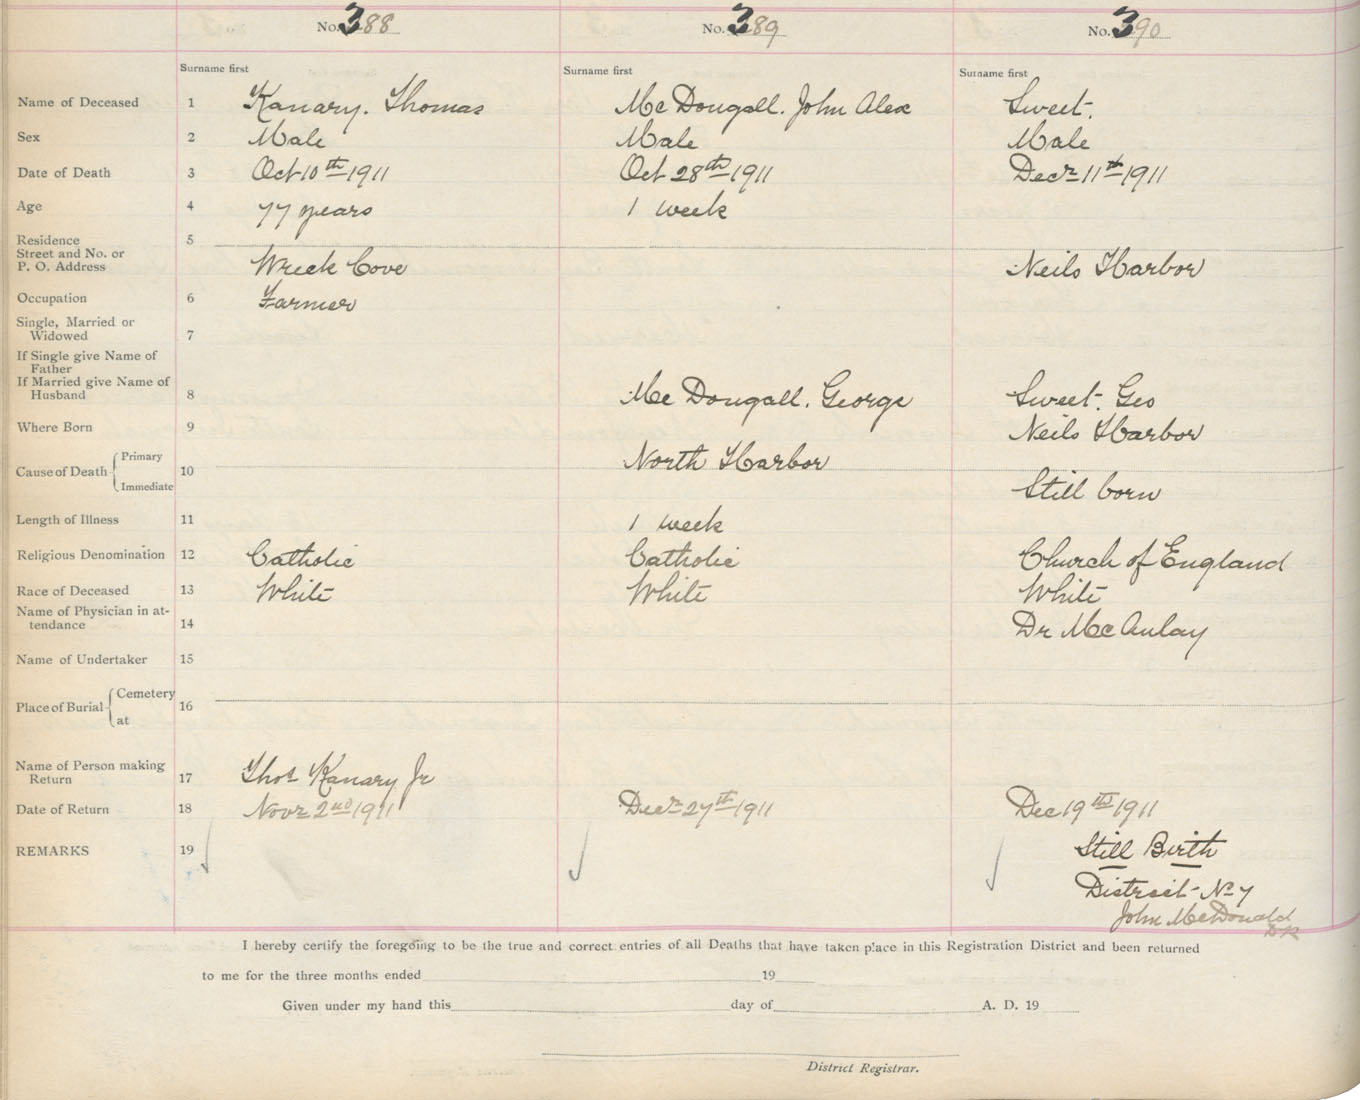 No. 388 No. 389 No. 390
Surname first Surname first Surname first
Name of Deceased 1 Kanary. Thomas Mc Dougall. John Alex Sweet.
Sex 2 Male Male Male
Date of Death 3 Oct 10th 1911 Oct 28th 1911 Decr 11th 1911
Age 4 77 years 1 week
Residence 5
Street and No. or
P. O. Address Wreck Cove Neils Harbor
Occupation 6 Farmer
Single, Married or
Widowed 7
If Single give Name of
Father
If Married give Name of
Husband 8 Mc Dougall. George Sweet. Geo
Where Born 9 North Harbor Neils Harbor
Cause of Death Primary
10
Immediate Still born
Length of Illness 11 1 week
Religious Denomination 12 Catholic Catholic Church of England
Race of Deceased 13 White White White
Name of Physician in at-
tendance 14 Dr McAulay
Name of Undertaker 15
Place of Burial Cemetery
16
at
Name of Person making
Return 17 Thos Kanary Jr
Date of Return 18 Novr 2nd 1911 Decr 27th 1911 Dec 19th 1911
REMARKS 19 Still Birth
District No 7
John McDonald
DR
I hereby certify the foregoing to be the true and correct entries of all Deaths that have taken place in this Registration District and been returned
to me for the three months ended 19
Given under my hand this day of A. D. 19
District Registrar.